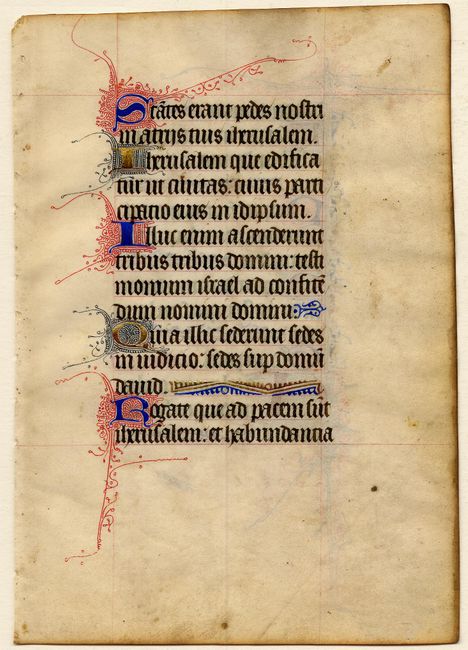 Stātes erant pedes nostri
in atrijs tuis iherusalem.
Iherusalem que edifica
tur ut ciuitas: cuius parti
cipatio eius in idipsum.
Illuc enim ascenderunt
tribus tribus domini: testi
monium israel ad confitē
dum nomini domini.
Quia illic sederunt sedes
in iudicio: sedes sup domū
dauid.
Rogate que ad pacem sūt
iherusalem: et habundancia